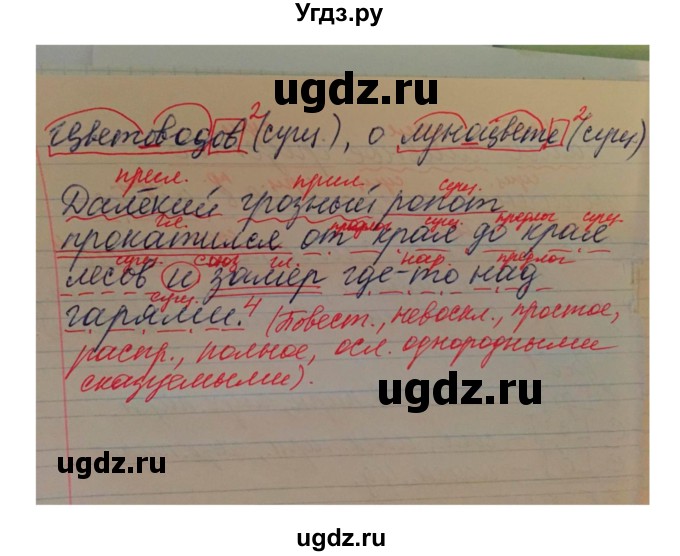 Угдз.ру
ugdz.ru
цветоводов² (сущ.), о луноцвете² (сущ.)
прил. прил. сущ.
Далёкий грозный ропот
гл. предлог сущ. предлог сущ.
прокатился от края до края
сущ. союз гл. нар. предлог
лесов и замер где-то над
сущ.
гарями.⁴ (Повест., невоскл., простое,
распр., полное, осл. однородными
сказуемыми).
ugdz.ru
ugdz.ru
ugdz.ru